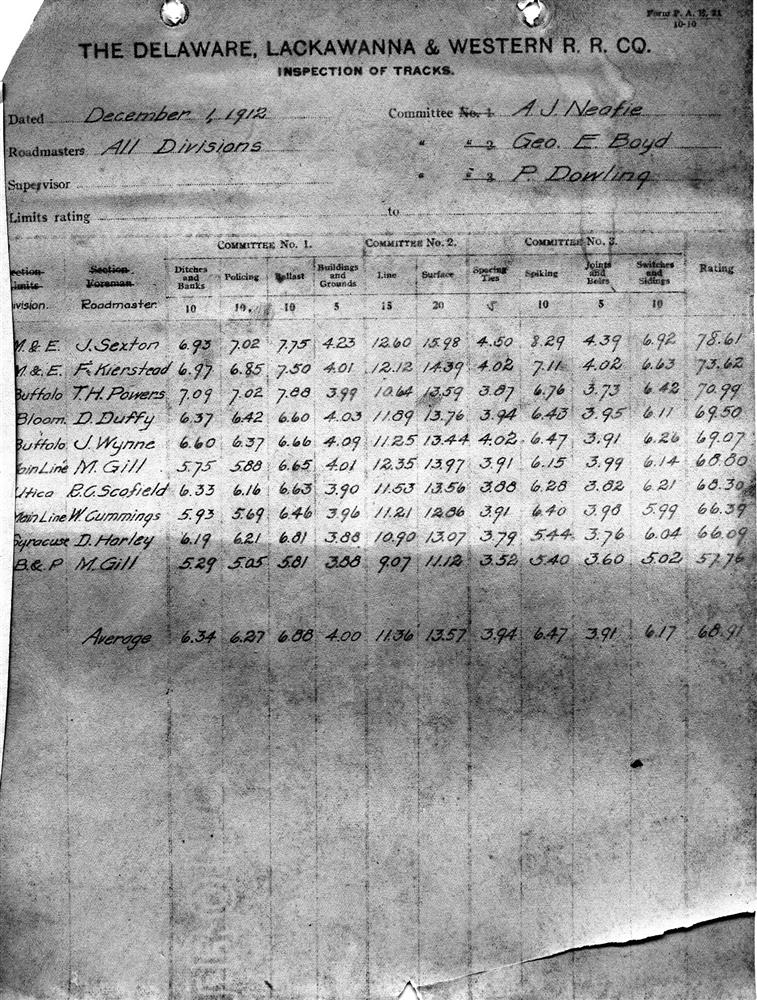 Form P. A. H. 21
10-10
THE DELAWARE, LACKAWANNA & WESTERN R. R. CO.
INSPECTION OF TRACKS.
Dated December 1, 1912 Committee No. 1 A. J. Neafie
Roadmasters All Divisions " " 2 Geo. E Boyd
Supervisor " " 3 P. Dowling
Limits rating to
COMMITTEE No. 1. COMMITTEE No. 2. COMMITTEE No. 3.
ection Limits Section Foreman Ditches and Banks Policing Ballast Buildings and Grounds Line Surface Spacing Ties Spiking Joints and Switches and Sidings Rating
vision Roadmaster 10 10 10 5 15 20 5 10 5 10
M. & E. J. Sexton 6.93 7.02 7.75 4.23 12.60 15.98 4.50 8.29 4.39 6.92 78.61
M. & E. F. Kierstead 6.97 6.85 7.50 4.01 12.12 14.39 4.02 7.11 4.02 6.63 73.62
Buffalo T. H. Powers 7.09 7.02 7.88 3.99 10.64 13.59 3.87 6.76 3.73 6.42 70.99
Bloom. D. Duffy 6.37 6.42 6.60 4.03 11.89 13.76 3.94 6.43 3.95 6.11 69.50
Buffalo J. Wynne 6.60 6.37 6.66 4.09 11.25 13.44 4.02 6.47 3.91 6.26 69.07
ain Line M. Gill 5.75 5.88 6.65 4.01 12.35 13.97 3.91 6.15 3.99 6.14 68.80
Utica R. C. Scofield 6.33 6.16 6.63 3.90 11.53 13.56 3.88 6.28 3.82 6.21 68.30
Main Line W. Cummings 5.93 5.69 6.46 3.96 11.21 12.86 3.91 6.40 3.98 5.99 66.39
Syracuse D. Harley 6.19 6.21 6.81 3.88 10.90 13.07 3.79 5.44 3.76 6.04 66.09
B. & P M. Gill 5.29 5.05 5.81 3.88 9.07 11.12 3.52 5.40 3.60 5.02 57.76
Average 6.34 6.27 6.88 4.00 11.36 13.57 3.94 6.47 3.91 6.17 68.91